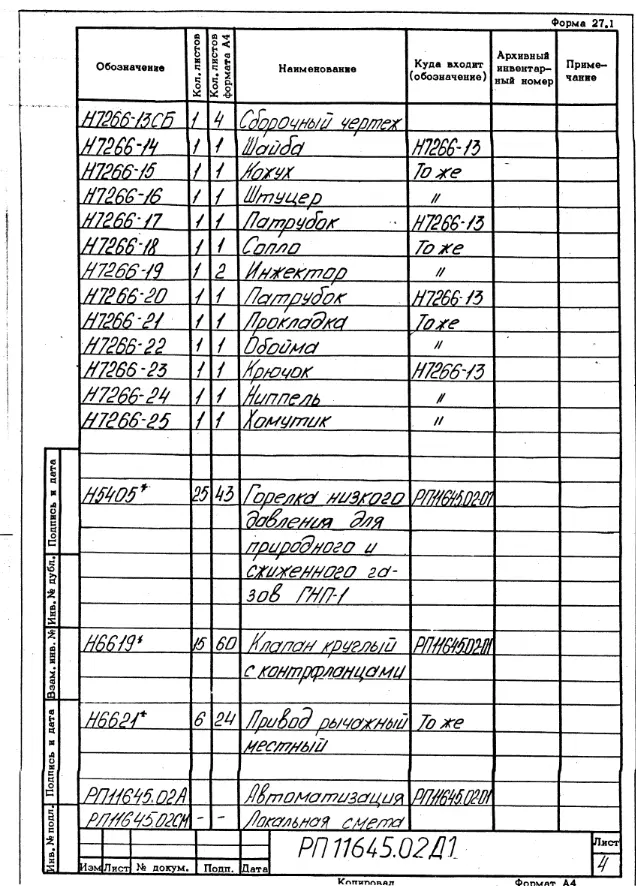 Форма 27.1
Обозначение Кол. листов Кол. листов формата А4 Наименование Куда входит (обозначение) Архивный инвентарный номер Примечание
Н7266-13СБ 1 4 Сборочный чертеж
Н7266-14 1 1 Шайба Н7266-13
Н7266-15 1 1 Кожух То же
Н7266-16 1 1 Штуцер "
Н7266-17 1 1 Патрубок Н7266-13
Н7266-18 1 1 Сопло То же
Н7266-19 1 2 Инжектор "
Н7266-20 1 1 Патрубок Н7266-13
Н7266-21 1 1 Прокладка То же
Н7266-22 1 1 Обойма "
Н7266-23 1 1 Крючок Н7266-13
Н7266-24 1 1 Ниппель "
Н7266-25 1 1 Хомутик "
Н5405* 25 43 Горелка низкого РП11645.02-01
давления для
природного и
сжиженного га-
зов ГНП-1
Н6619* 15 60 Клапан круглый РП11645.02-01
с контрфланцами
Н6621* 6 24 Привод рычажный То же
местный
РП11645.02А Автоматизация РП11645.02-01
РП11645.02СМ - - Локальная смета
Инв. № подл. Подпись и дата Взам. инв. № Инв. № дубл. Подпись и дата
РП11645.02Д1 Лист
4
Изм Лист № докум. Подп. Дата
Копировал Формат А4